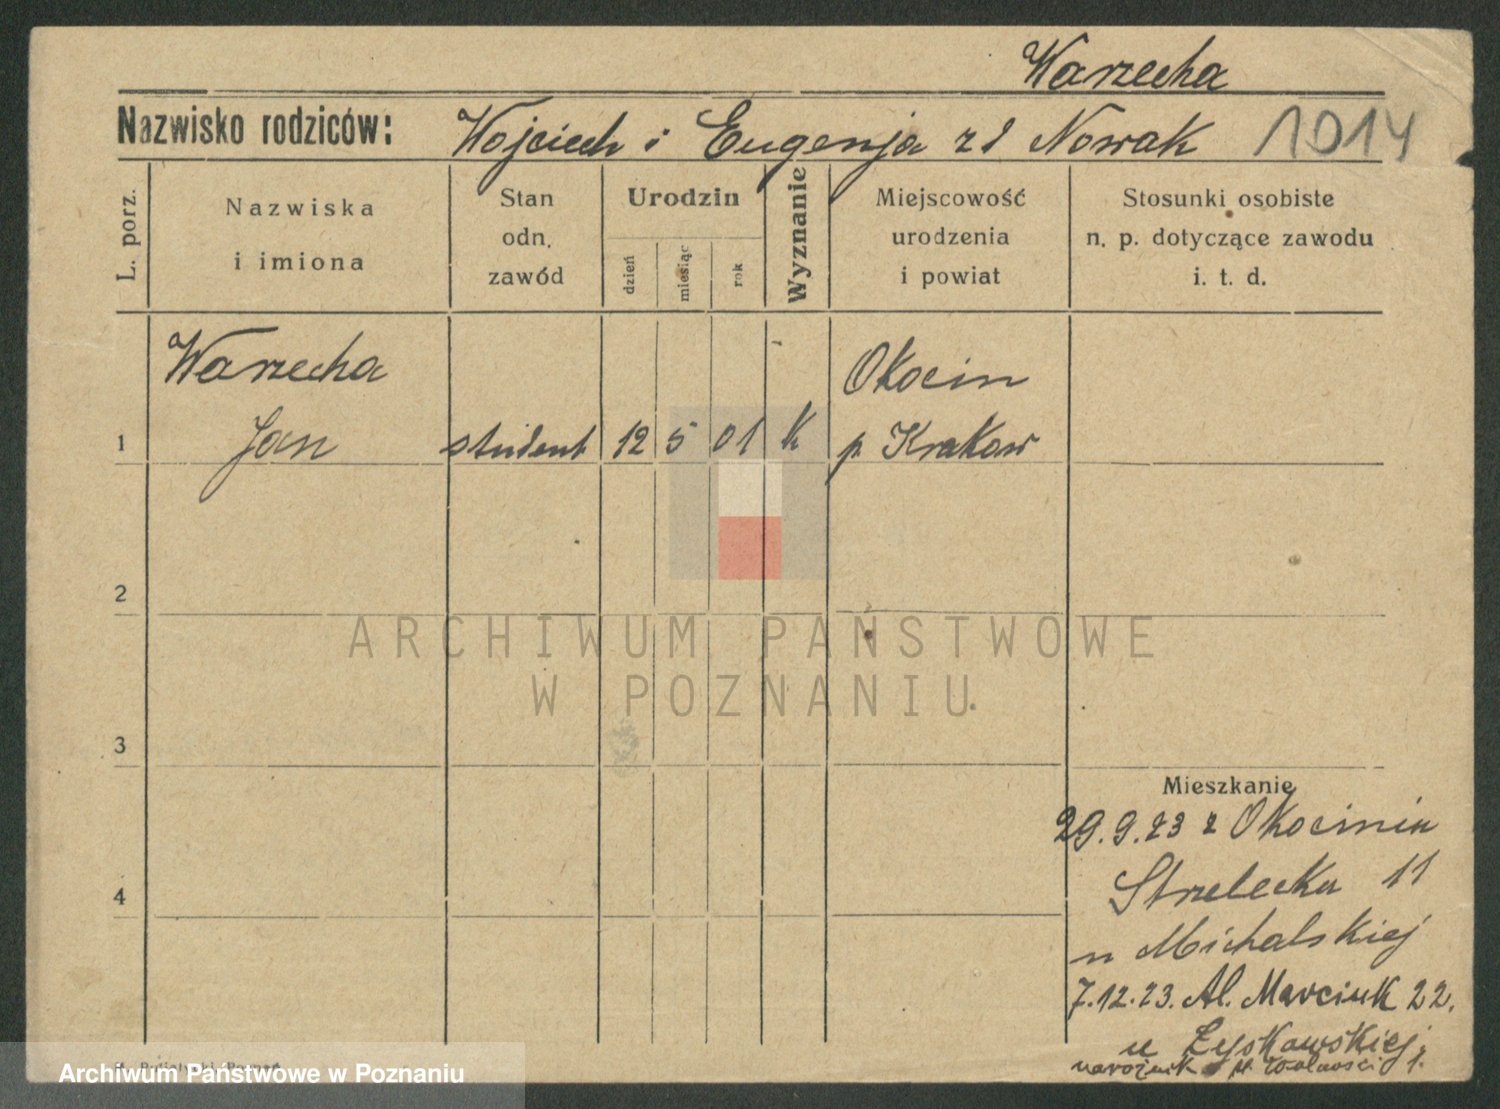 Warzecha
Nazwisko rodziców: Wojciech i Eugenja zd Nowak 1014
L. porz.
Nazwiska
i imiona
Stan
odn.
zawód
Urodzin
dzień
miesiąc
rok
Wyznanie
Miejscowość
urodzenia
i powiat
Stosunki osobiste
n. p. dotyczące zawodu
i. t. d.
Warzecha
Okocin
1 Jan student 12 5 01 K p. Krakow
2
ARCHIWUM PAŃSTWOWE
W POZNANIU
3
Mieszkanie
29.9.23 z Okocinia
Strzelecka 11
u Michalskiej
4
7.12.23. Al. Marcink 22.
u Łyskowskiej
narożnik pl. Wolności 1.
Poznań
Archiwum Państwowe w Poznaniu